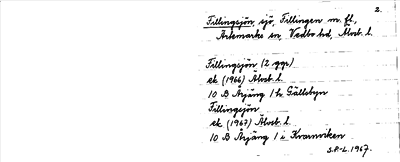 2.
Tillingsjön, sjö, Tillingen m. fl,
Artemarks sn, Vedbo hd, Älvsb. l.
Tillingsjön (2 ggr)
ek (1966) Älvsb. l.
10 B Årjäng 1 h Gällsbyn
Tillingsjön
ek (1967) Älvsb. l.
10 B Årjäng 1 i Kvarnviken
S.P.-L. 1967.